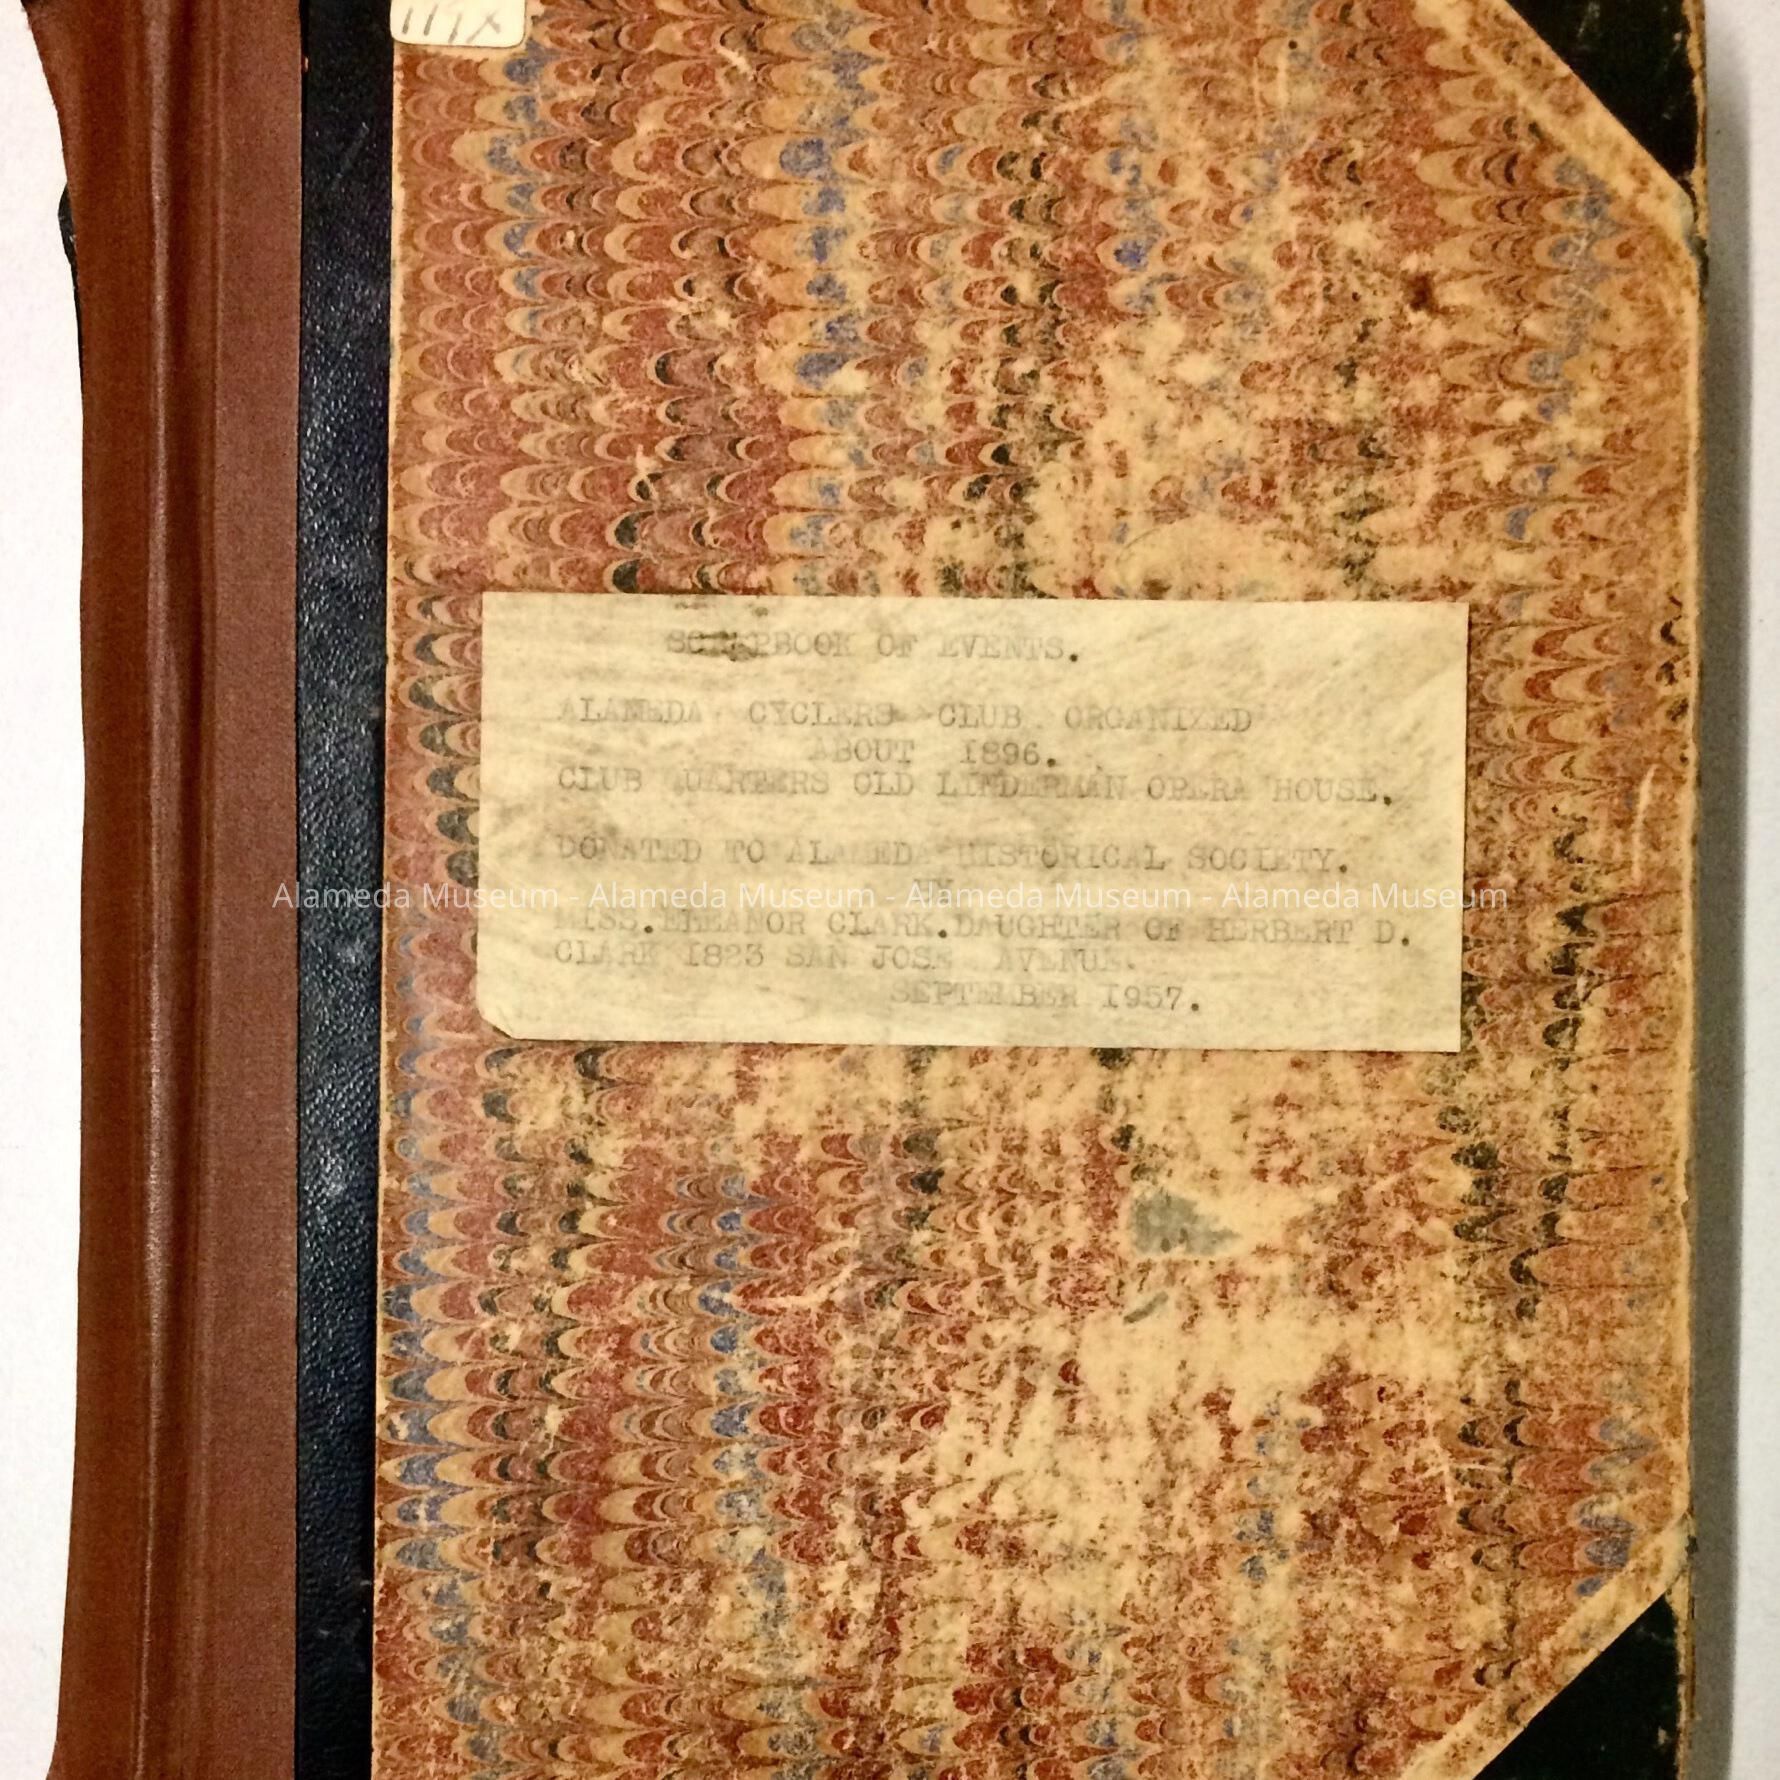 119X
SCRAPBOOK OF EVENTS.
ALAMEDA CYCLERS CLUB ORGANIZED
ABOUT 1896.
CLUB QUARTERS OLD LINDERMAN OPERA HOUSE.
DONATED TO ALAMEDA HISTORICAL SOCIETY.
BY
Alameda Museum - Alameda Museum - Alameda Museum - Alameda Museum
MISS.ELEANOR CLARK.DAUGHTER OF HERBERT D.
CLARK 1823 SAN JOSE AVENUE.
SEPTEMBER 1957.